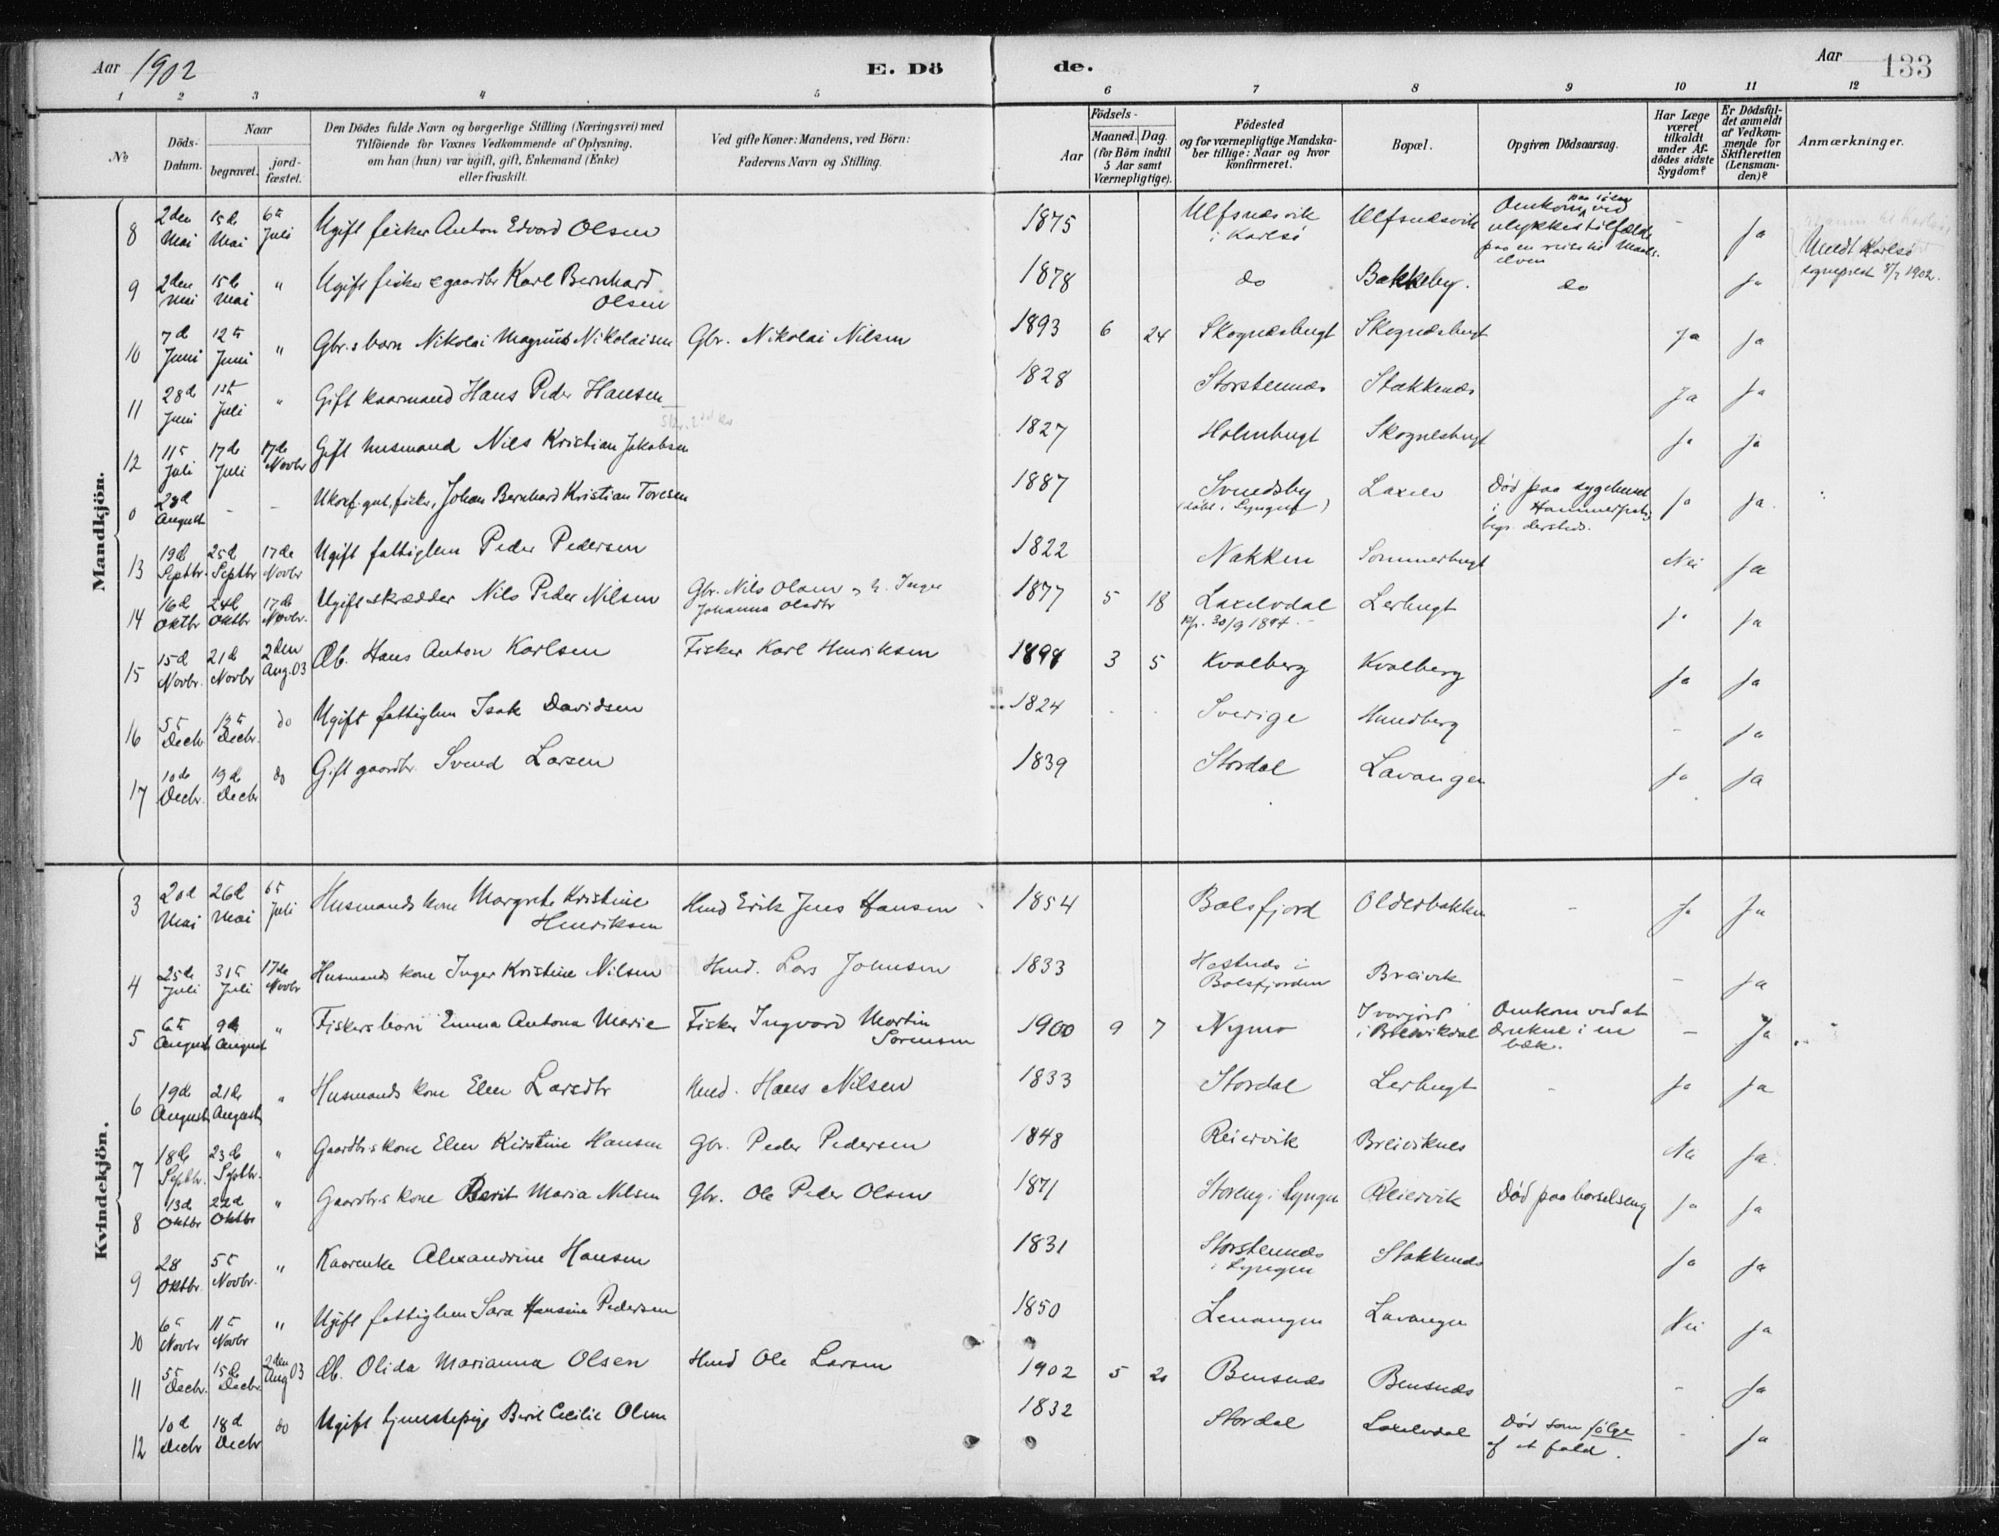 Aar 1902
E. Dö
de.
Aar
133
1 2 3 4 5 6 7 8 9 10 11 12
No
Döds-
Datum.
Naar
begravet.
jord-
fæstet.
Den Dödes fulde Navn og borgerlige Stilling (Næringsvei) med
Tilföiende for Voxnes Vedkommende af Oplysning,
om han (hun) var ugift, gift, Enkemand (Enke)
eller fraskilt.
Ved gifte Koner: Mandens, ved Börn:
Faderens Navn og Stilling.
Födsels-
Aar
Maaned. Dag.
(for Börn indtil
5 Aar samt
Værnepligtige).
Födested
og for værnepligtige Mandska-
ber tillige: Naar og hvor
konfirmeret.
Bopæl.
Opgiven Dödsaarsag.
Har Læge
været
tilkaldt
under Af-
dödes sidste
Sygdom?
Er Dödsfal-
det anmeldt
af Vedkom-
mende for
Skifteretten
(Lensman-
den)?
Anmærkninger.
Mandkjön.
8 2den Mai 15d Mai 6te Juli Ugift fisker Anton Edvard Olsen 1875 Ulfsnæsvik i Karlsö Ulfsnæsvik Omkom ved ulykkestilfælde paa en reise til Maals-elven - Ja Meldt Karlsö sogneprest 8/7 1902.
9 2den Mai 15d Mai " Ugift fisker & gaardbr Karl Bernhard Olsen 1878 do Bakkeby. do Ja
10 7d Juni 12te Juni " Gbr.s barn Nikolai Magnus Nikolaisen Gbr. Nikolai Nilsen 1893 6 24 Skognæsbugt Skognæsbugt Ja Ja
11 28d Juni 1ste Juli " Gift kaarmand Hans Peder Hansen 1828 Storstennæs Stakkenæs Ja Ja
12 11te Juli 17de Juli 17de Novbr Gift husmand Nils Kristian Jakobsen 1827 Holmbugt Skognesbugt Ja Ja
0 23d August - - Ukonf. gut, fisker, Johan Bernhard Kristian Toresen 1887 Svendsby (döbt i Lyngen) Laxelv Död paa sygehuset i Hammerfest, begr. dersteds. Ja Ja.
13 19d Septbr. 25d Septbr 17de Novbr Ugift fattiglem Peder Pedersen 1822 Nakken Sommerbugt Nei Ja
14 16d Oktbr 24d Oktbr 17de Novbr. Ugift skrædder Nils Peder Nilsen Gbr. Nils Olsen og h. Inger Johanna Olsdtr 1877 5 18 Laxelvdal kf. 30/9 1894. Lerbugt Ja Ja
15 15d Novbr. 21d Novbr 2den Aug. 03 Æb. Hans Anton Karlsen Fisker Karl Henriksen 1898 3 5 Kvalberg Kvalberg Ja Ja
16 5te Decbr 12te Decbr. do Ugift fattiglem Isak Davidsen 1824 Sverige Hundberg - Ja
17 10de Decbr. 19d Decbr do Gift gaardbr. Svend Larsen 1839 Stordal Lavangen Ja Ja
Kvindekjön.
3 20d Mai 26d Mai 6te Juli Husmands kone Margrete Kristine Henriksen Hmd Erik Jens Hansen 1854 Balsfjord Olderbakken - Ja Ja
4 25de Juli 31te Juli 17de Novbr Husmands kone Inger Kristine Nilsen Hmd. Lars Johnsen 1833 Hestnæs i Balsfjorden Breivik - Ja
5 6te August 9de August " Fiskers barn Emma Antona Marie Fisker Ingvard Martin Sörensen 1900 9 7 Nymo Ivarjord i Breivikdal Omkom ved at drukne i en bæk. - Ja
6 19d August 21de August " Husmands kone Elen Larsdtr Hmd. Hans Nilsen 1833 Stordal Lerbugt - Ja Ja
7 18de Septbr. 23d Septbr. " Gaardbr.s kone Elen Kirstine Hansen Gbr. Peder Pedersen 1848 Reiervik Breiviknes Nei Ja.
8 13d Oktbr 22d Oktbr " Gaardbr.s kone Berit Maria Nilsen Gbr. Ole Peder Olsen 1871 Storeng i Lyngen Reiervik Död paa barselseng Ja Ja
9 28 Oktbr. 5te Novbr. " Kaarenke Alexandrine Hansen 1831 Storstennæs i Lyngen Stakkenæs Ja Ja
10 6te Novbr 11te Novbr " Ugift fattiglem Sara Hansine Pedersen 1850 Lenangen Lavangen Nei Ja
11 5te Decbr. 15de Decbr. 2den Aug 03 Æb. Olida Marianna Olsen Hmd Ole Larsen 1902 5 20 Bensnæs Bensnæs - Ja
12 10d Decbr 18d Decbr do Ugift tjenestepige Berit Cecilie Olsen 1832 Stordal Laxelvdal Död som fölge af et fald. - Ja